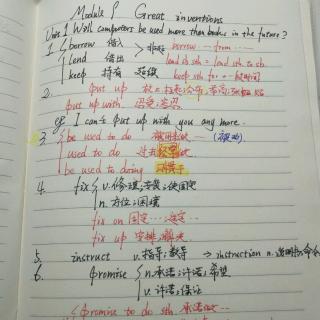 Module 9 Great inventions
Unit 1 Will computers be used more than books in the future?
1. borrow 借入 borrow ... from ...
lend 借出 lend sb sth = lend sth to sb
keep 持有 延续 keep sth for + 一段时间
2. put up
put up with 忍受;
eg I can't put up with you any more.
3. be used to do 被用来做... (被动)
used to do 过去常常做
be used to doing 习惯于
4. fix v. 修理;安装;使固定
n. 方位;困境
fix on 固定...;选定...
fix up 安排;解决
5. instruct v. 指导;教导 → instruction n.
6. promise n. 承诺;许诺;希望
v. 许诺;保证
promise to do sth 承诺做...